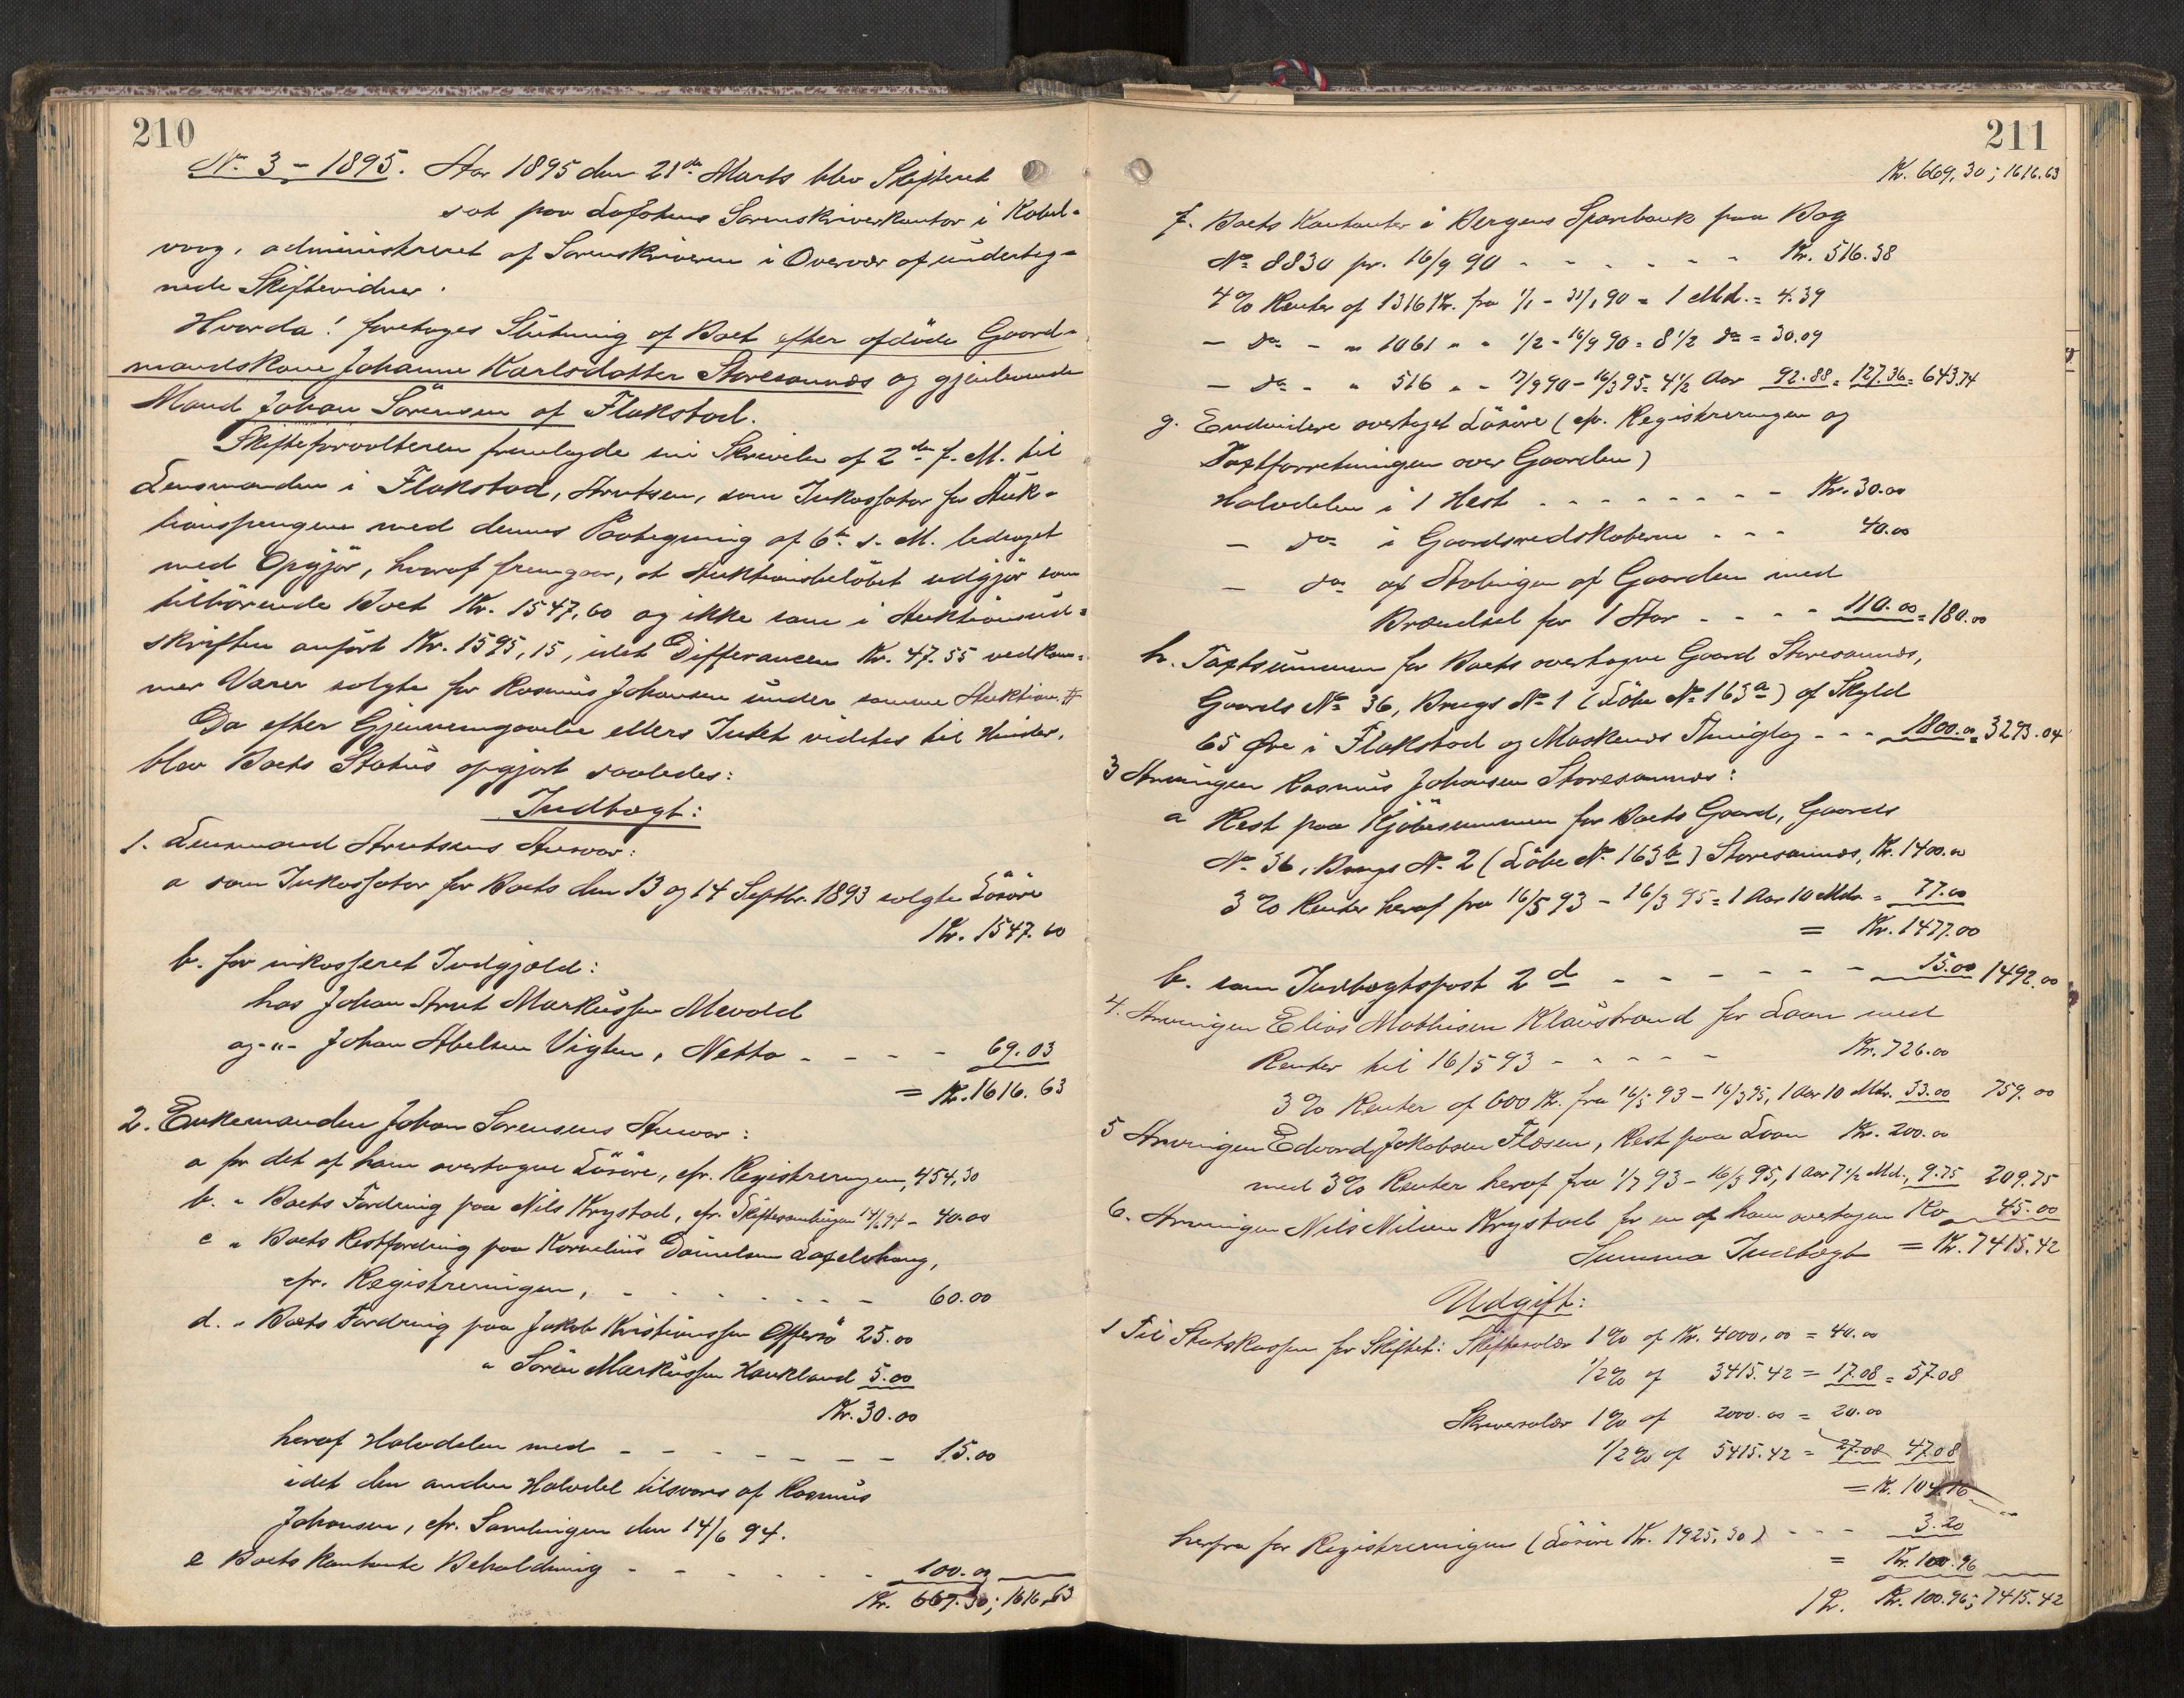 210
No 3 - 1895. Aar 1895 den 21de Marts blev Skifteret
sat paa Lofotens Sorenskriverkontor i Kabel-
vaag, administreret af Sorenskriveren i Overvær af underteg-
nede Skiftevidner.
Hvorda! foretoges Slutning af Boet efter afdöde Gaard-
mandskone Johanne Karlsdatter Storesannæs og gjenlevende
Mand Johan Sörensen af Flakstad.
Skifteforvalteren fremlagde sin Skrivelse af 2den f. M. til
Lensmanden i Flakstad, Arntsen, som Inkassator for Auk-
tionspengene med dennes Paategning af 6te s. M. ledsaget
med Opgjör, hvoraf fremgaar, at Auktionsbelöbet udgjör som
tilhörende Boet Kr. 1547,60 og ikke som i Auktionsud-
skriften anfört Kr. 1595,15, idet Differancen Kr. 47.55 vedkom-
mer Varer solgte for Rasmus Johansen under samme Auktion. #
Da efter Gjennemgaaelse ellers Intet vidstes til Hinder,
blev Boets Status opgjort saaledes:
Indtægt:
1. Lensmand Arntsens Ansvar:
a som Inkassator for Boets den 13 og 14 Septbr. 1893 solgte Lösöre
Kr. 1547.60
b. for inkasseret Indgjæld:
hos Johan Arnt Markussen Mevold
og -"- Johan Abelsen Vigten, Netto - - - - 69.03
= Kr. 1616.63
2. Enkemanden Johan Sörensens Ansvar:
a for det af ham overtagne Lösöre, cfr. Registreringen, 454,30
b. " Boets Fordring paa Nils Krystad, cfr. Skiftesamlingen 14/6 94 - 40.00
c " Boets Restfordring paa Kornelius Danielsen
cfr. Registreringen, - - - - - - - 60.00
d. " Boets Fordring paa Jakob Kristianssen Offersö 25.00
" Sören Markussen Haukland 5.00
Kr. 30.00
heraf Halvdelen med - - - - - - - 15.00
idet den anden Halvdel tilsvares af Rasmus
Johansen, cfr. Samlingen den 14/6 94.
e Boets kontante Beholdning - - - - - - 100.00
Kr. 669.30; 1616.63
211
Kr. 669,30; 1616.63
f. Boets Kontanter i Bergens Sparebank paa Bog
No 8830 pr. 16/9 90 - - - - - - Kr. 516.38
4% Renter af 1316 Kr. fra 1/1 - 31/1 90 = 1 Md. = 4.39
- do - " 1061 " " 1/2 - 16/9 90 = 8 1/2 do = 30.09
- do - " 516 " - 17/9 90 - 16/3 95 = 4 1/2 Aar 92.88 = 127.36 = 643.74
g. Endvidere overtaget Lösöre (cfr. Registreringen og
Taxtforretningen over Gaarden)
Halvdelen i 1 Hest - - - - - - - - Kr. 30.00
- do i Gaardsredskaberne - - - 40.00
- do af Avlingen af Gaarden med
Brændsel for 1 Aar - - - - 110.00 = 180.00
h. Taxtsummen for Boets overtagne Gaard Storesannæs,
Gaards No 36, Brugs No 1 (Löbe No 163a) af Skyld
65 Öre i Flakstad og Moskenæs Thinglag - - - 1800.00 = 3293.04
3 Arvingen Rasmus Johansen Storesannæs:
a Rest paa Kjöbesummen for Boets Gaard, Gaards
No 36, Brugs No 2 (Löbe No 163b) Storesannæs, Kr. 1400.00
3% Renter heraf fra 16/5 93 - 16/3 95 = 1 Aar 10 Mdr = 77.00
= Kr. 1477.00
b. som Indtægtspost 2 d - - - - - - 15.00 1492.00
4. Arvingen Elias Mathisen Klaustrand for Laan med
Renter til 16/5 93 - - - - - Kr. 726.00
3% Renter af 600 Kr. fra 16/5 93 - 16/3 95, 1 Aar 10 Mdr. 33.00 759.00
5 Arvingen Edvard Jakobsen Flæsen, Rest paa Laan Kr. 200.00
med 3% Renter heraf fra 1/7 93 - 16/3 95, 1 Aar 7 1/2 Md., 9.75 209.75
6. Arvingen Nils Nilsen Krystad for en af ham overtagen Ko 45.00
Summa Indtægt = Kr. 7415.42
Udgift:
1 Til Statskassen for Skiftet: Skiftesalær 1% af Kr. 4000,00 = 40.00
1/2% af 3415.42 = 17.08 = 57.08
Skriversalær 1% af 2000.00 = 20.00
1/2% af 5415.42 = 27.08 47.08
= Kr. 104.16
herfra for Registreringen (Lösöre Kr. 1925,30) - - - 3.20
= Kr. 100.96
Kr. 100.96; 7415.42